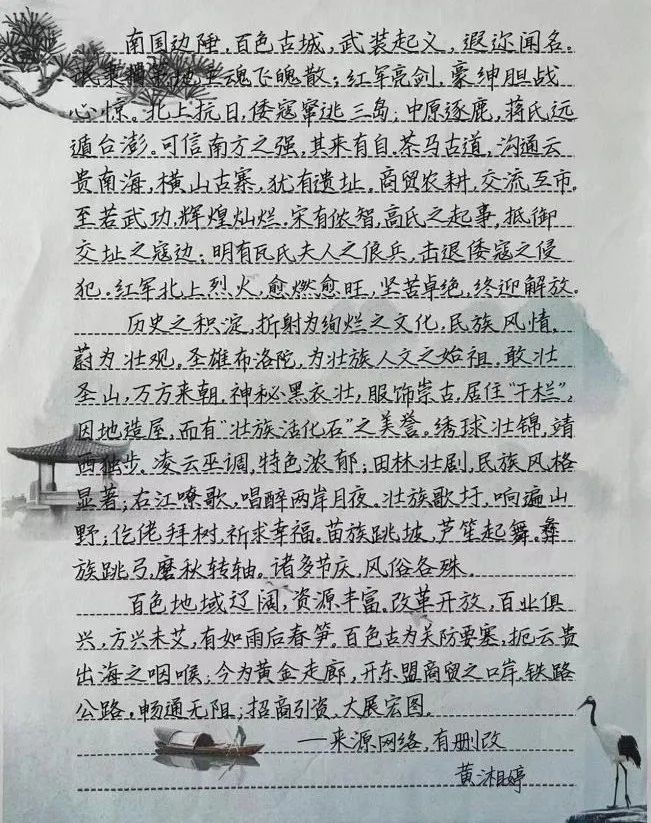 南国边陲,百色古城,武装起义,遐迩闻名。
地主魂飞魄散;红军亮剑,豪绅胆战
心惊。北上抗日,倭寇窜逃三岛;中原逐鹿,蒋氏远
遁台澎。可信南方之强,其来有自。茶马古道,沟通云
贵南海,横山古寨,犹有遗址。商贸农耕,交流互市。
至若武功,辉煌灿烂。宋有侬智高氏之起事,抵御
交址之寇边;明有瓦氏夫人之俍兵,击退倭寇之侵
犯。红军北上烈火,愈燃愈旺,坚苦卓绝,终迎解放。
历史之积淀,折射为绚烂之文化;民族风情,
蔚为壮观。圣雄布洛陀,为壮族人文之始祖,敢壮
圣山,万方来朝。神秘黑衣壮,服饰崇古,居住“干栏”,
因地造屋,而有“壮族活化石”之美誉。绣球壮锦,靖
西独步。凌云巫调,特色浓郁;田林壮剧,民族风格
显著;右江嘹歌,唱醉两岸月夜。壮族歌圩,响遍山
野;仡佬拜树,祈求幸福。苗族跳坡,芦笙起舞。彝
族跳弓,磨秋转轴。诸多节庆,风俗各殊。
百色地域辽阔,资源丰富。改革开放,百业俱
兴,方兴未艾,有如雨后春笋。百色古为关防要塞,扼云贵
出海之咽喉;今为黄金走廊,开东盟商贸之口岸。铁路
公路,畅通无阻;招商引资,大展宏图。
—来源网络,有删改
黄湘婷